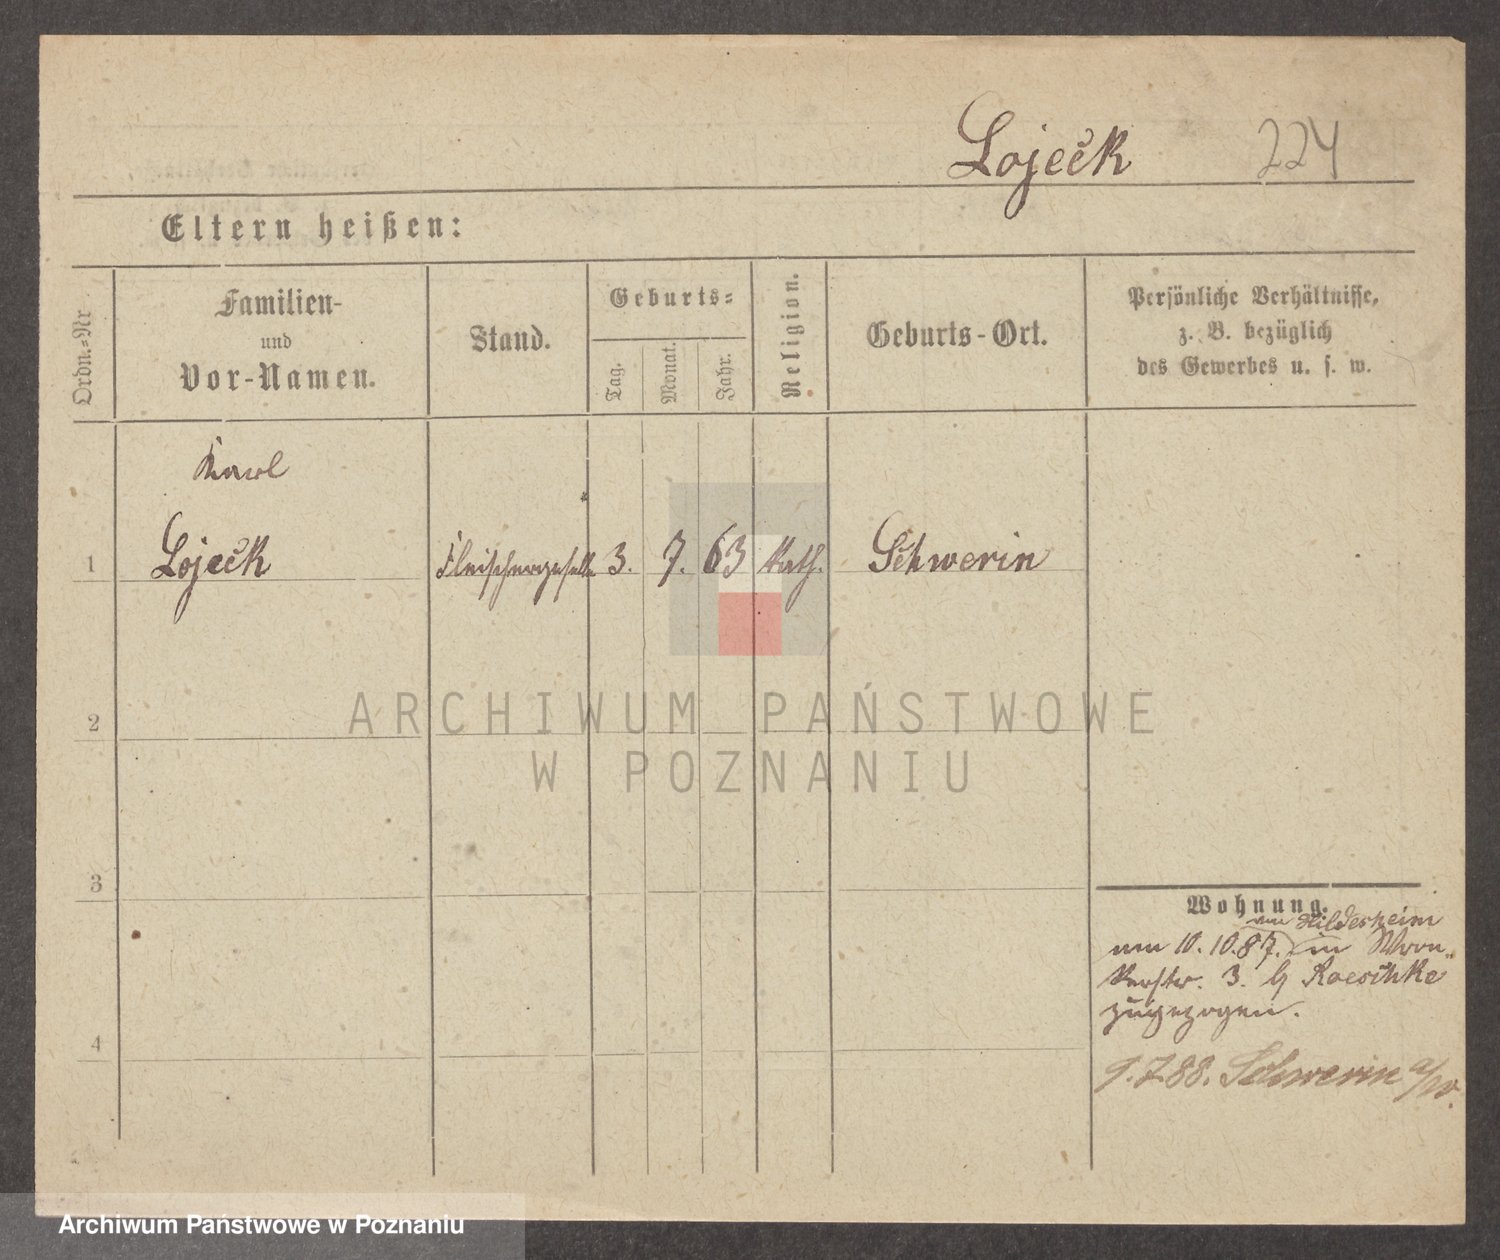 Lojeck 224
Eltern heißen:
Ordn.=Nr
Familien-
und
Vor-Namen.
Stand.
Geburts=
Tag.
Monat.
Jahr.
Religion.
Geburts-Ort.
Persönliche Verhältnisse,
z. B. bezüglich
des Gewerbes u. s. w.
Karl
1 Lojeck Fleischergeselle 3. 7. 63 Kath. Schwerin
2
3
4
Wohnung.
von Hildesheim
am 10.10.87. in Wron-
kerstr. 3. b/ Raeschke
zugezogen.
9.7.88. Schwerin a/W.
ARCHIWUM PAŃSTWOWE
W POZNANIU
Archiwum Państwowe w Poznaniu